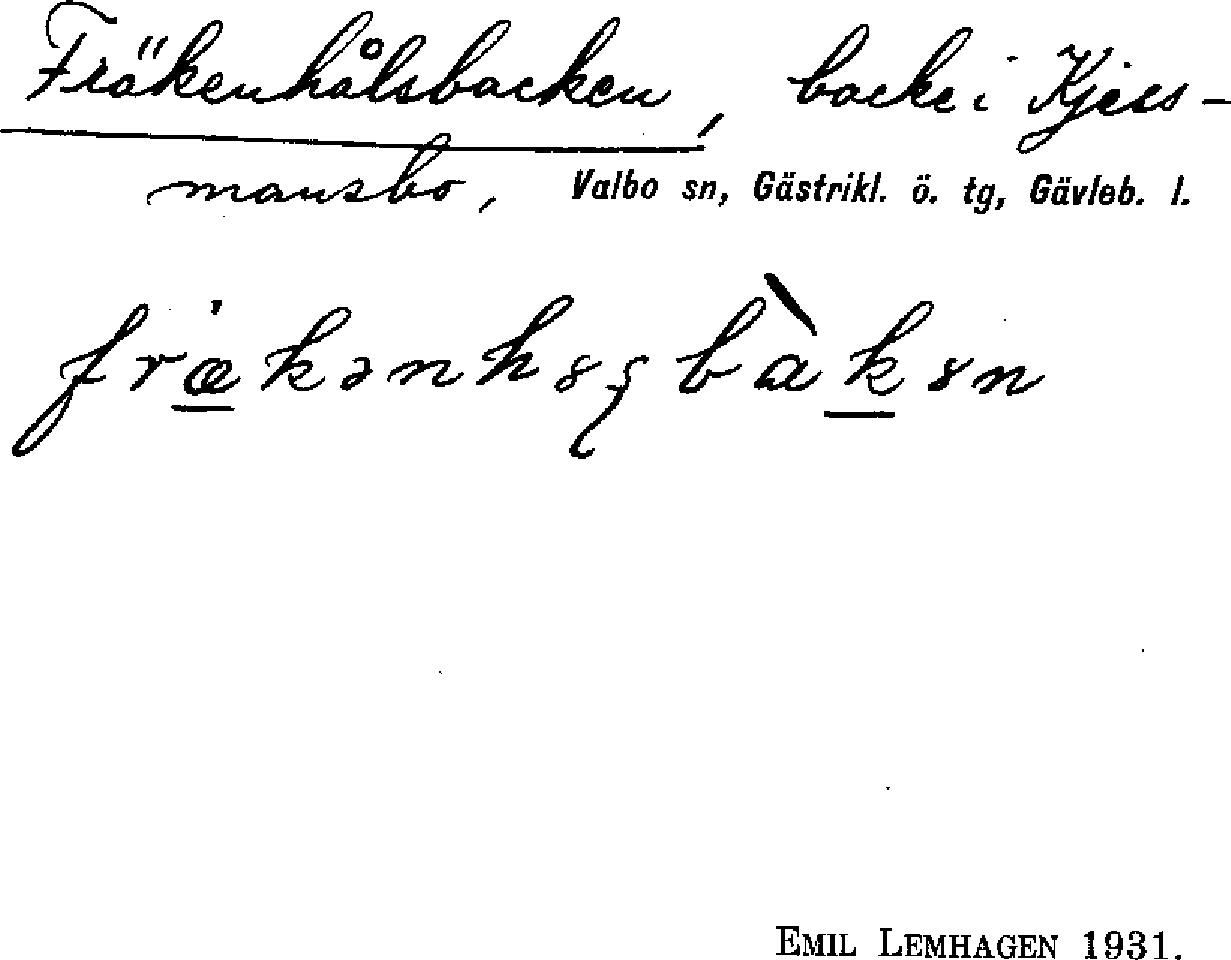 Fräkenhålsbacken, backe i Kjess-
mansbo, Valbo sn, Gästrikl. ö. tg, Gävleb. l.
EMIL LEMHAGEN 1931.